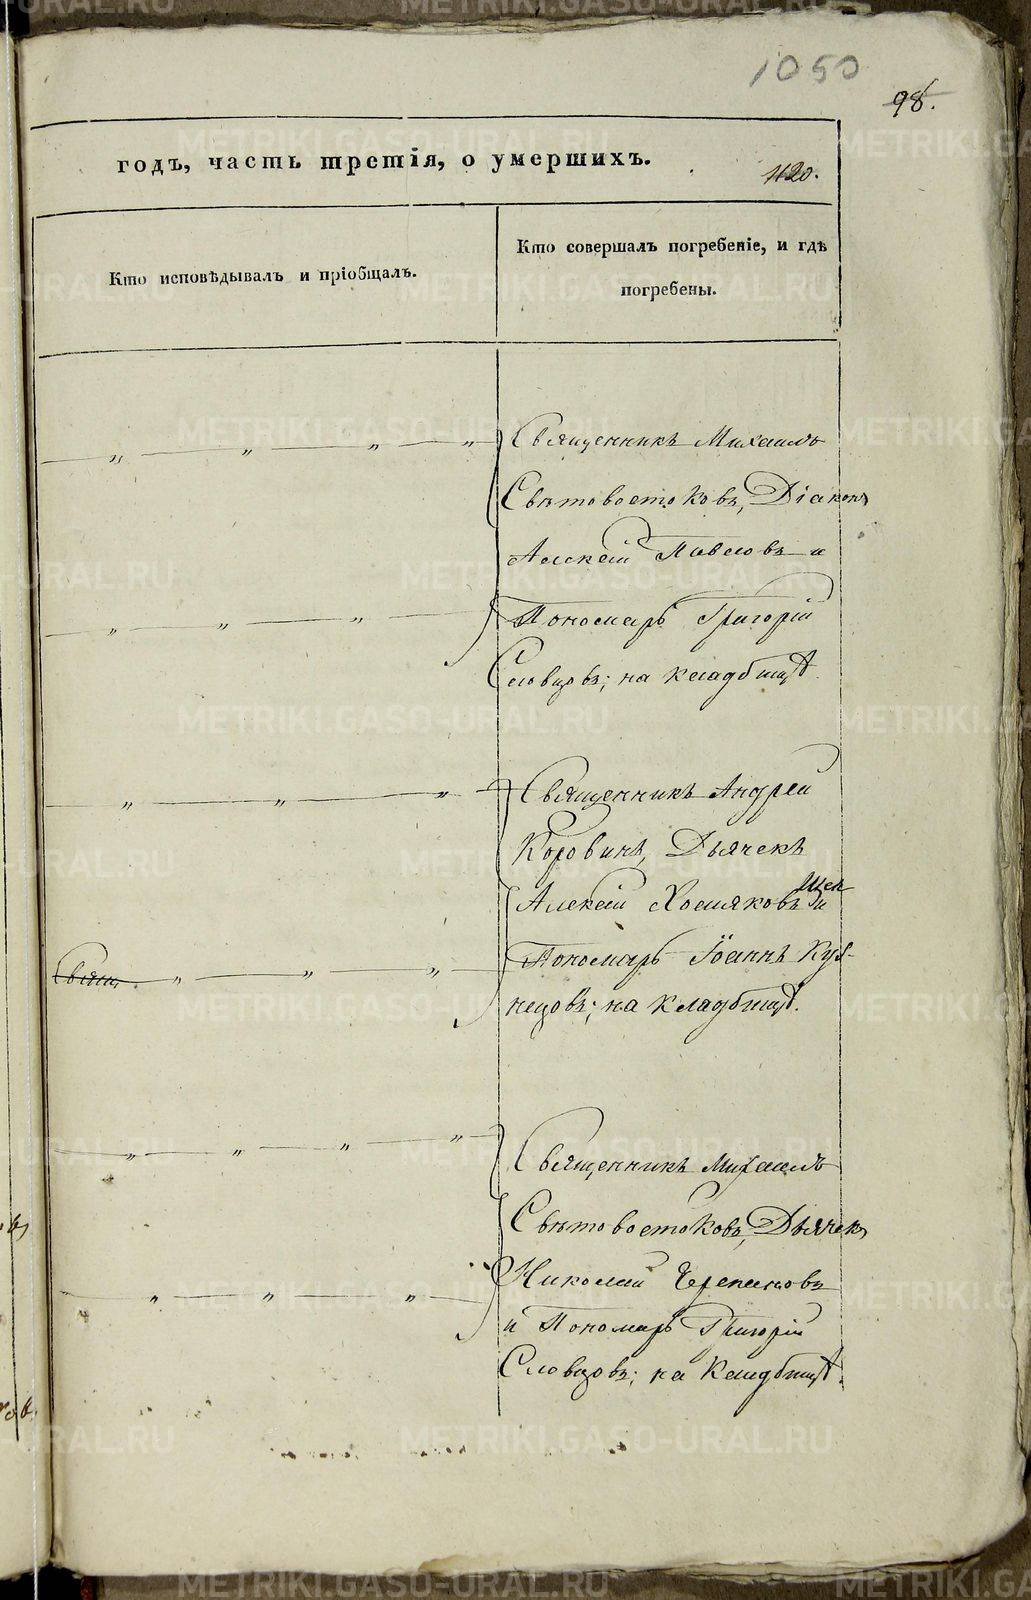 1050
98.
годъ, часть третія, о умершихъ.
1120.
Кто исповѣдывалъ и пріобщалъ.
Кто совершалъ погребеніе, и гдѣ
погребены.
Священникъ Михаилъ
Свѣтовостоковъ, Діаконъ
Алексій Павловъ и
Пономарь Григорій
Словцовъ; на кладбищѣ.
Священникъ Андрей
Коровинъ, Дьячекъ
Алексій Хомяковъ и
Пономарь Іоаннъ Куз-
нецовъ; на кладбищѣ.
Свящ.
Священникъ Михаилъ
Свѣтовостоковъ, Дьячекъ
Николай Черепановъ
и Пономарь Григорій
Словцовъ; на кладбищѣ.
METRIKI.GASO-URAL.RU